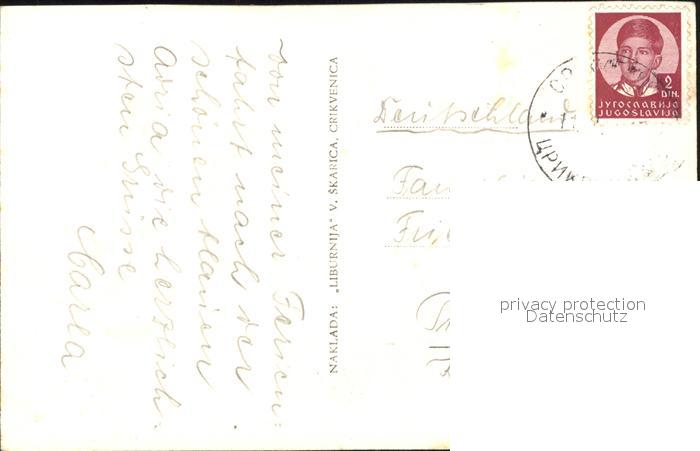 Von meiner Ferien-
fahrt nach der
schönen blauen
Adria die herzlich-
sten Grüsse
Carla
NAKLADA: „LIBURNIJA" V. ŠKARICA, CRIKVENICA
2
DIN.
ЈУГОСЛАВИЈА
JUGOSLAVIJA
ЦРИК
Deutschland
Fam
privacy protection
Datenschutz